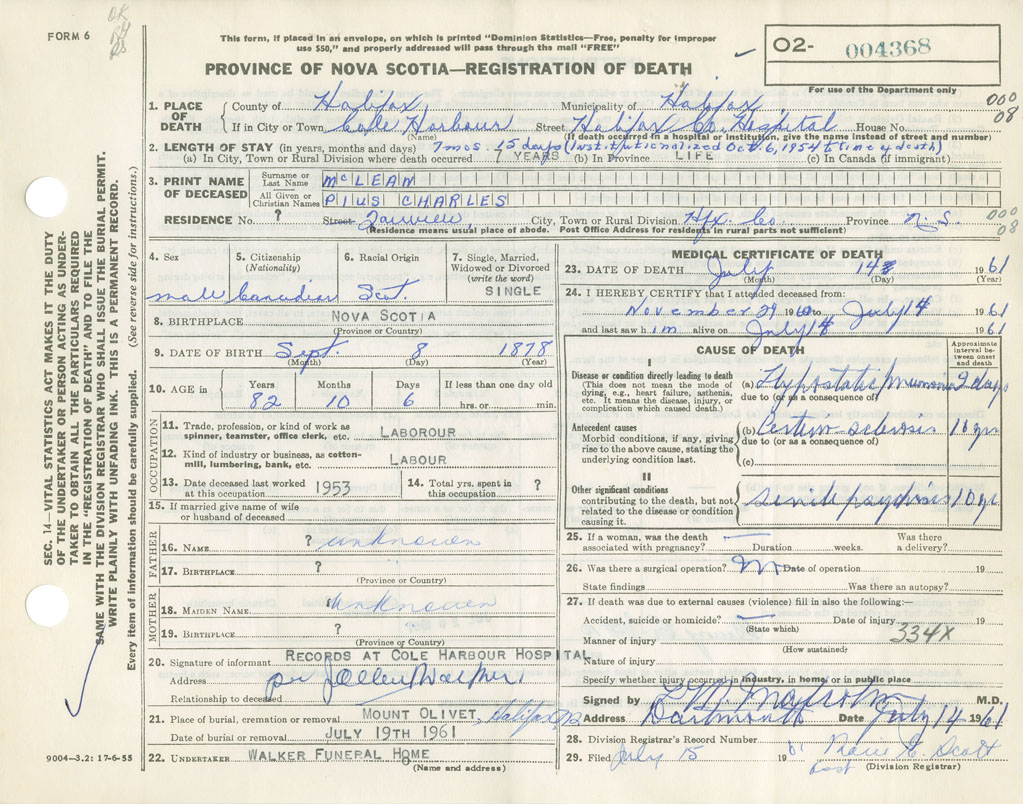 FORM 6
This form, if placed in an envelope, on which is printed "Dominion Statistics—Free, penalty for improper
use $50," and properly addressed will pass through the mail "FREE"
PROVINCE OF NOVA SCOTIA—REGISTRATION OF DEATH
O2- 004368
For use of the Department only
000
08
1. PLACE OF DEATH
County of Halifax Municipality of Halifax
If in City or Town Cole Harbour Street Halifax Co. Hospital House No.
(Name) (If death occurred in a hospital or institution, give the name instead of street and number)
2. LENGTH OF STAY (in years, months and days) 7 mos. 15 days (Institutionalized Oct. 6, 1954 to time of death)
(a) In City, Town or Rural Division where death occurred 7 YEARS (b) In Province LIFE (c) In Canada (if immigrant)
3. PRINT NAME OF DECEASED
Surname or Last Name McLEAN
All Given or Christian Names PIUS CHARLES
RESIDENCE No. ? Street City, Town or Rural Division Hfx. Co. Province N.S.
000
08
(Residence means usual place of abode. Post Office Address for residents in rural parts not sufficient)
4. Sex
male
5. Citizenship (Nationality)
Canadian
6. Racial Origin
Scot.
7. Single, Married, Widowed or Divorced (write the word)
SINGLE
8. BIRTHPLACE NOVA SCOTIA
(Province or Country)
9. DATE OF BIRTH Sept. 8 1878
(Month) (Day) (Year)
10. AGE in Years Months Days If less than one day old
82 10 6 hrs. or min.
OCCUPATION
11. Trade, profession, or kind of work as spinner, teamster, office clerk, etc. LABOROUR
12. Kind of industry or business, as cotton-mill, lumbering, bank, etc. LABOUR
13. Date deceased last worked at this occupation 1953
14. Total yrs. spent in this occupation ?
15. If married give name of wife or husband of deceased
FATHER
16. NAME ? unknown
17. BIRTHPLACE ?
(Province or Country)
MOTHER
18. MAIDEN NAME unknown
19. BIRTHPLACE ?
(Province or Country)
20. Signature of informant RECORDS AT COLE HARBOUR HOSPITAL
Address per Walker
Relationship to deceased
21. Place of burial, cremation or removal MOUNT OLIVET, Halifax
Date of burial or removal JULY 19TH 1961
22. UNDERTAKER WALKER FUNERAL HOME
(Name and address)
MEDICAL CERTIFICATE OF DEATH
23. DATE OF DEATH July 14 1961
(Month) (Day) (Year)
24. I HEREBY CERTIFY that I attended deceased from:
November 29 1960 to July 14 1961
and last saw him alive on July 14 1961
CAUSE OF DEATH
Approximate interval between onset and death
I
Disease or condition directly leading to death
(This does not mean the mode of dying, e.g., heart failure, asthenia, etc. It means the disease, injury, or complication which caused death.)
(a) Hypostatic pneumonia 2 days
due to (or as a consequence of)
Antecedent causes
Morbid conditions, if any, giving rise to the above cause, stating the underlying condition last.
(b) sclerosis 10 yrs
due to (or as a consequence of)
(c)
II
Other significant conditions
contributing to the death, but not related to the disease or condition causing it.
senile psychosis 10 yrs
25. If a woman, was the death associated with pregnancy? — Duration weeks. Was there a delivery?
26. Was there a surgical operation? no Date of operation 19
State findings Was there an autopsy?
27. If death was due to external causes (violence) fill in also the following:—
Accident, suicide or homicide? — Date of injury 19
(State which)
334X
Manner of injury
(How sustained)
Nature of injury
Specify whether injury occurred in industry, in home, or in public place
Signed by Malcolm M.D.
Address Dartmouth Date July 14 1961
28. Division Registrar's Record Number
29. Filed July 15 1961 Scott
(Division Registrar)
SEC. 14—VITAL STATISTICS ACT MAKES IT THE DUTY
OF THE UNDERTAKER OR PERSON ACTING AS UNDER-
TAKER TO OBTAIN ALL THE PARTICULARS REQUIRED
IN THE "REGISTRATION OF DEATH" AND TO FILE THE
SAME WITH THE DIVISION REGISTRAR WHO SHALL ISSUE THE BURIAL PERMIT.
WRITE PLAINLY WITH UNFADING INK. THIS IS A PERMANENT RECORD.
Every item of information should be carefully supplied. (See reverse side for instructions.)
9004—3.2: 17-6-55